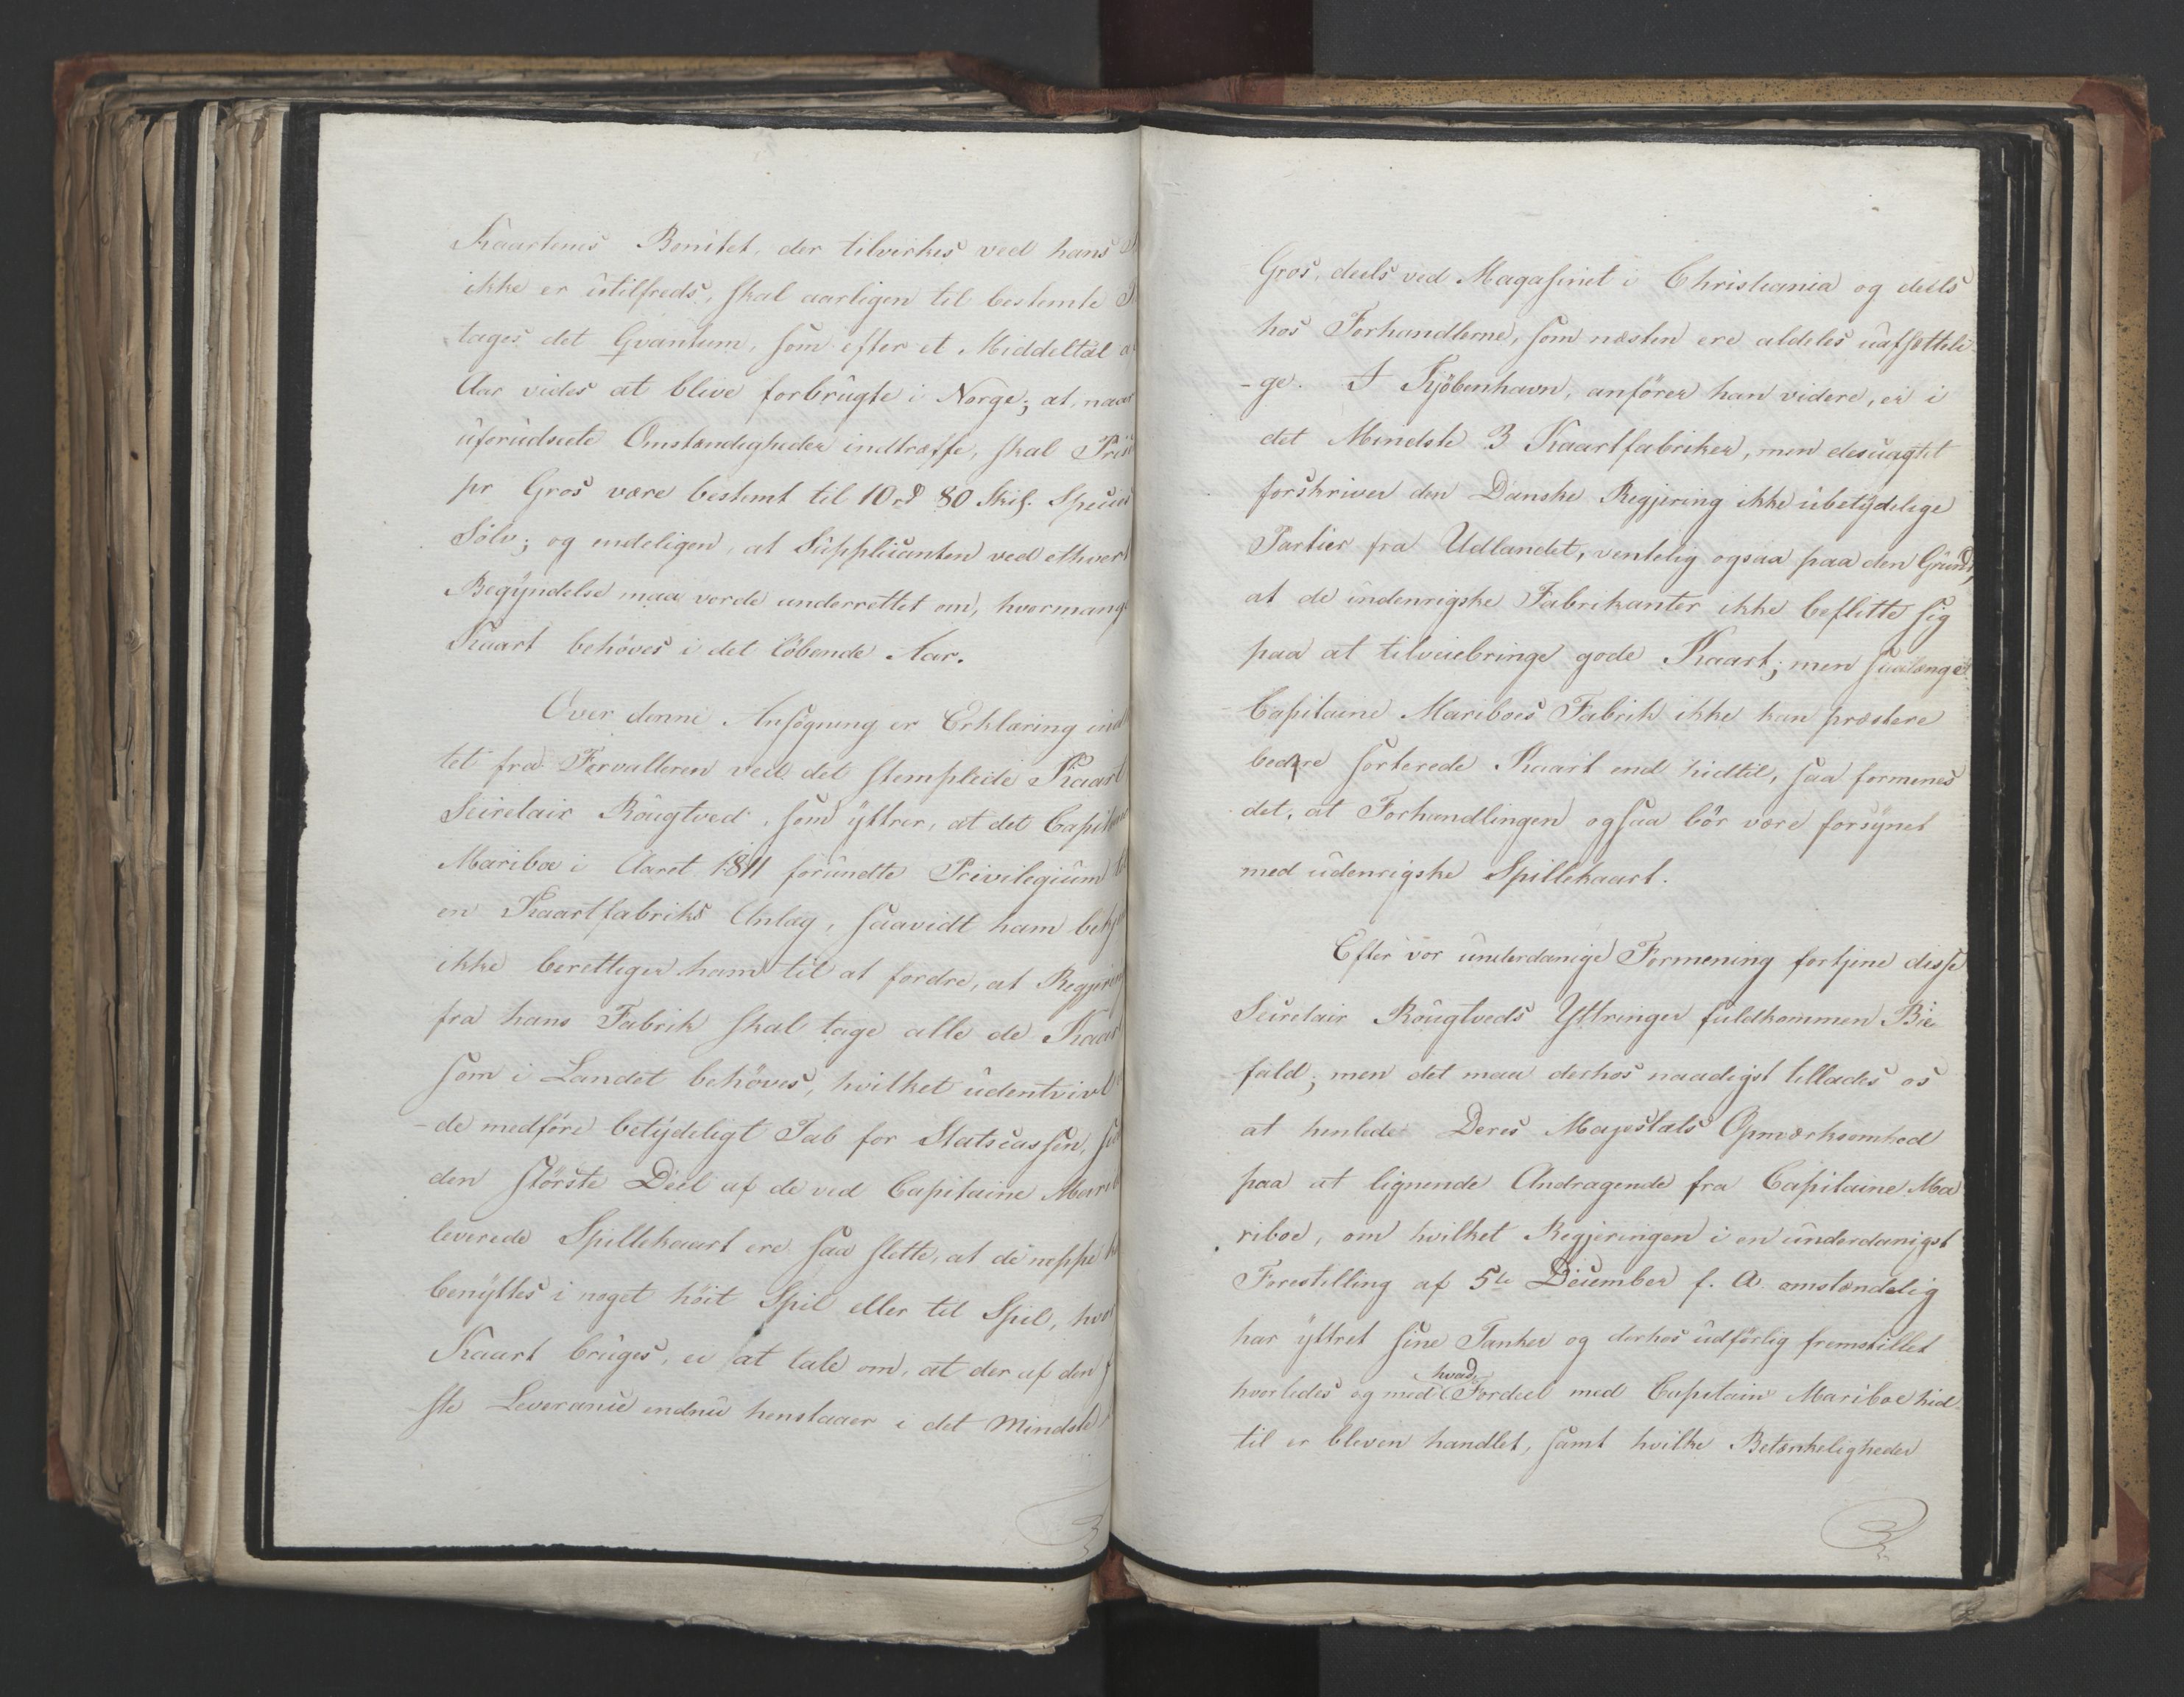 Kaartenes Bonitet, der tilvirkes ved hans
ikke er utilfreds, skal aarligen til bestemte
tages det Qvantum, som efter et Middeltal
Aar vides at blive forbrugte i Norge; at, naar
uforudseete Omstændigheder indtræffe, skal Pris
pr Gros være bestemt til 10 rd 80 Skil. Specie
Sølv; og endeligen, at Supplicanten ved ethvert
Begyndelse maa vorde underrettet om, hvormange
Kaart behøves i det løbende Aar.
Over denne Ansøgning er Erklæring ind
tet fra Forvalteren ved det stemplede Kaart
Secretair Rougtved, som yttrer, at det Capitaine
Mariboe i Aaret 1811 forundte Privilegium
en Kaartfabriks Anlæg, saavidt ham bekj
ikke berettiger ham til at fordre, at Regjering
fra hans Fabrik skal tage alle de Kaart
som i Landet behøves, hvilket udentvivl
-de medføre betydeligt Tab for Statscassen,
den største Deel af de ved Capitaine Marib
leverede Spillekaart ere saa slette, at de neppe
benyttes i noget høit Spil eller til Spil, hvor
Kaart bruges, ei at tale om, at der af den
ste Leverance endnu henstaaer i det Mindste
Gros, deels ved Magasinet i Christiania og deels
hos Forhandlerne, som næsten ere aldeles uafsætteli
-ge. I Kjøbenhavn, anfører han videre, er i
det Mindste 3 Kaartfabriker, men desuagtet
forskriver den Danske Regjering ikke ubetydelige
Partier fra Udlandet, ventelig ogsaa paa den Grund,
at de indenrigske Fabrikanter ikke beflitte sig
paa at tilveiebringe gode Kaart; men saalænge
Capitaine Mariboes Fabrik ikke kan præstere
bedre sorterede Kaart end hidtil, saa formenes
det, at Forhandlingen ogsaa bør være forsynet
med udenrigske Spillekaart.
Efter vor underdanige Formening fortjene disse
Secretair Rougtveds Yttringer fuldkommen Bi
fald; men det maa derhos naadigst tillades os
at henlede Deres Majestæts Opmærksomhed
paa et lignende Andragende fra Capitaine Ma
riboe, om hvilket Regjeringen i en underdanigst
Forestilling af 5te December f. A. omstændelig
har yttret sine Tanker og derhos udførlig fremstillet
hvorledes og med hvad Fordeel med Capitain Mariboe hid
til er bleven handlet, samt hvilke Betænkeligheder